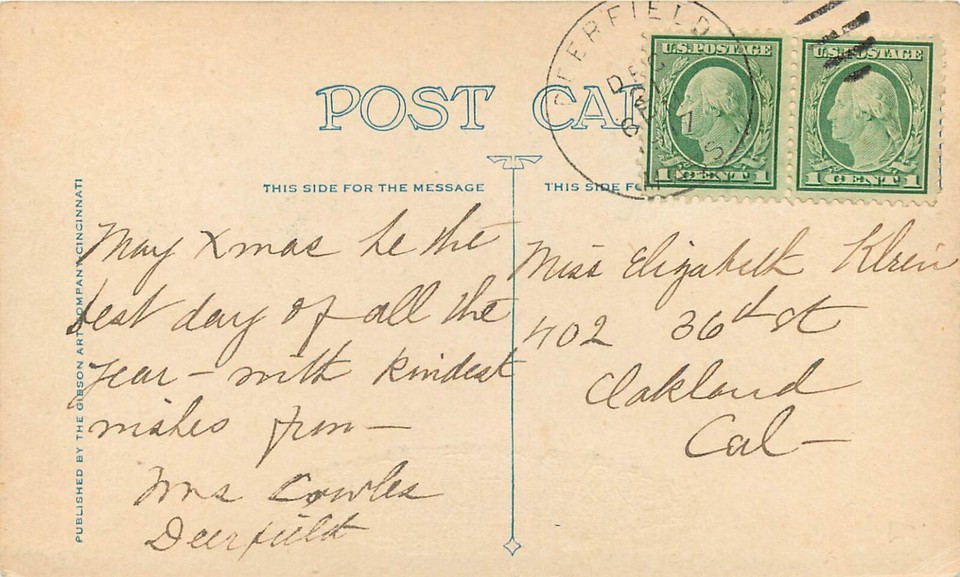 POST CA
DEERFIELD
DEC
U.S.POSTAGE
1 CENT 1
U.S.POSTAGE
1 CENT 1
THIS SIDE FOR THE MESSAGE
THIS SIDE FO
May Xmas be the
best day of all the
year – with kindest
wishes from –
Mrs Cowles
Deerfield
Miss Elizabeth Klein
402 36th St
Oakland
Cal –
PUBLISHED BY THE GIBSON ART COMPANY, CINCINNATI